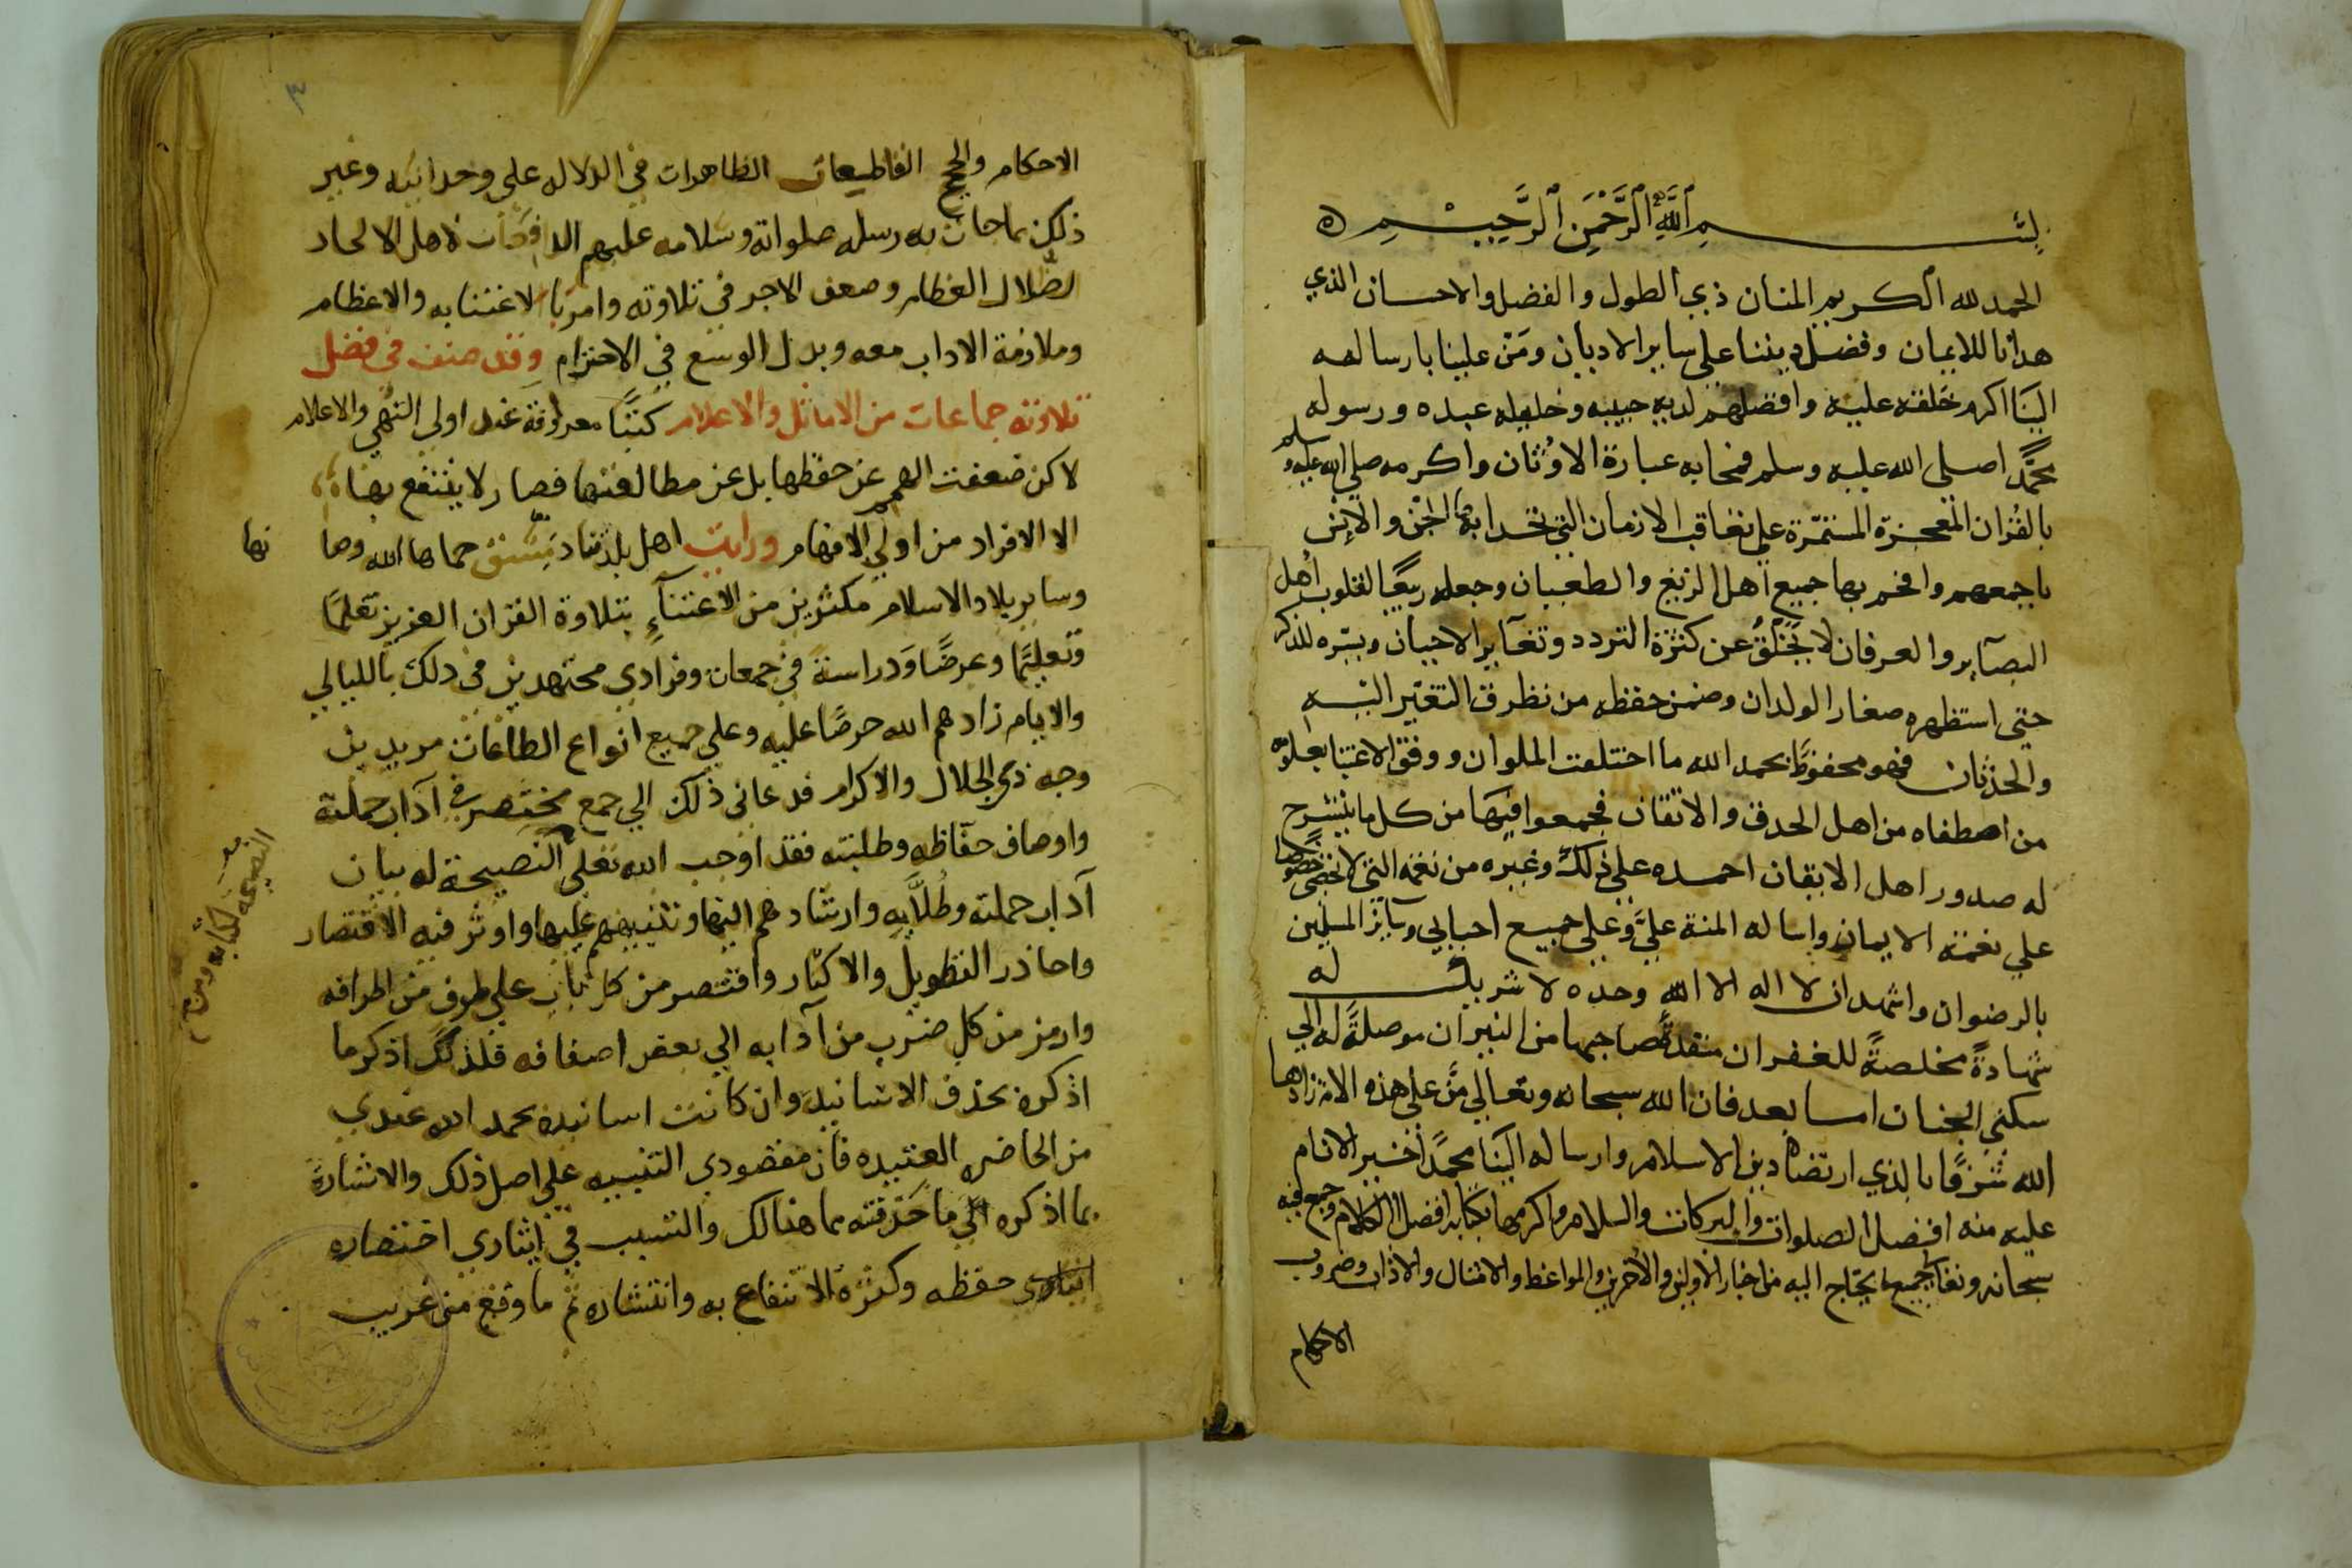 بسم الله الرحمن الرحيم
الحمد لله الكريم المنان ذي الطول والفضل والاحسان الذي
هدانا للايمان وفضل ديننا على ساير الاديان ومَنّ علينا بارساله
الينَا اكرم خلقه عليه وافضلهم لديه حبيبه وخليله عبده ورسوله
محمدًا صلى الله عليه وسلم فمحا به عبادة الاوثان واكرمه صلى الله عليه وسلم
بالقُران المعجزة المستمرة على تعاقب الازمان التي تحدا بها الجن والانس
باجمعهم وافحم بها جميع اهل الزيغ والطغيان وجعله ربيعًا لقلوب اهل
البصآير والعرفان لا يَخلَقُ عن كثرة التردد وتغآير الاحيان ويسّره للذكر
حتى استظهره صغار الولدان وضمن حفظه من تطرق التغير اليه
والحدثان فهو محفوظ بحمد الله ما اختلفت الملوان ووفق الاعتنا بعلومه
من اصطفاه من اهل الحدق والاتقان فجمعوا فيها من كل ما ينشرح
له صدور اهل الايقان احمده على ذلك وغيره من نعمه التي لا تحصى خصوصًا
علي نعمة الايمان واساله المنة عليَّ وعلي جميع احبابي وسآير المسلمين
بالرضوان واشهد ان لا اله الا الله وحده لا شريك له
شهادةً مخلصةً للغفران منقذةً صاحبها من النيران موصلةً له الي
سكني الجنان امــا بعد فان الله سبحانه وتعالي منَّ علي هذه الامة زادها
الله شرفًا بالذي ارتضاه دين الاسلام وارساله الينَا محمدًا خير الانام
عليه منه افضل الصلوات والبركات والسلام واكرمها بكتابه افضل الكلام وجمع فيه
سبحانه وتعالي جميع ما يحتاج اليه من اخبار الاولين والاخرين والمواعظ والامثال والاداب وضروب
الاحكام
٣
الاحكام والحجج القاطعات الظاهرات في الدلاله علي وحدانيته وغير
ذلك مما جات به رسله صلواته وسلامه عليهم الدامغات لاهل الالحاد
الضُّلال الطغام وضعف الاجر في تلاوته وامرنا بالاعتنا به والاعظام
وملازمة الاداب معه وبدل الوسع في الاحترام وقد صنف في فضل
تلاوته جماعات من الاماثل والاعلام كتبًا معروفة عند اولي النُّهي والاعلام
لاكن ضعفت الهمم عن حفظها بل عن مطالعتها فصار لا ينتفع بها
الا الافراد من اولي الافهام ورايت اهل بلدتنا دمشق حماها الله وصا
نها
وساير بلاد الاسلام مكثرين من الاعتنآءِ بتلاوة القران العزيز تعلمًا
وتعليمًا وعرضًا وَدراسةً في جمعات وفرادي مجتهدين في دلك بالليالي
والايام زادهم الله حرصًا عليه وعلي جميع انواع الطاعات مريدين
وجه ذي الجلال والاكرام فدعاني ذلك الي جمع مختصر في آداب حملته
واوصاف حفّاظه وطلبته فقد اوجب الله تعلي النصيحة له بيان
النصيحه لكتابه ومن
آداب حملته وطُلَّابه وارشادهم اليها وتنبيههم عليها واوثر فيه الاقتصار
واحاذر التطويل والاكثار واقتصر من كل باب علي طرف من اطرافه
وارمز من كل ضرب من آدابه الي بعض اصنافه فلذلك اذكر ما
اذكره بحذف الاسانيد وان كانت اسانيده بحمد الله عندي
من الحاضره العتيده فان مقصودي التنبيه علي اصل ذلك والاشارة
بما اذكره الي ما حَذفته مما هنالك والسبب في ايثاري اختصاره
ايثاري حفظه وكثرة الانتفاع به وانتشاره ثم ما وقع من غريب